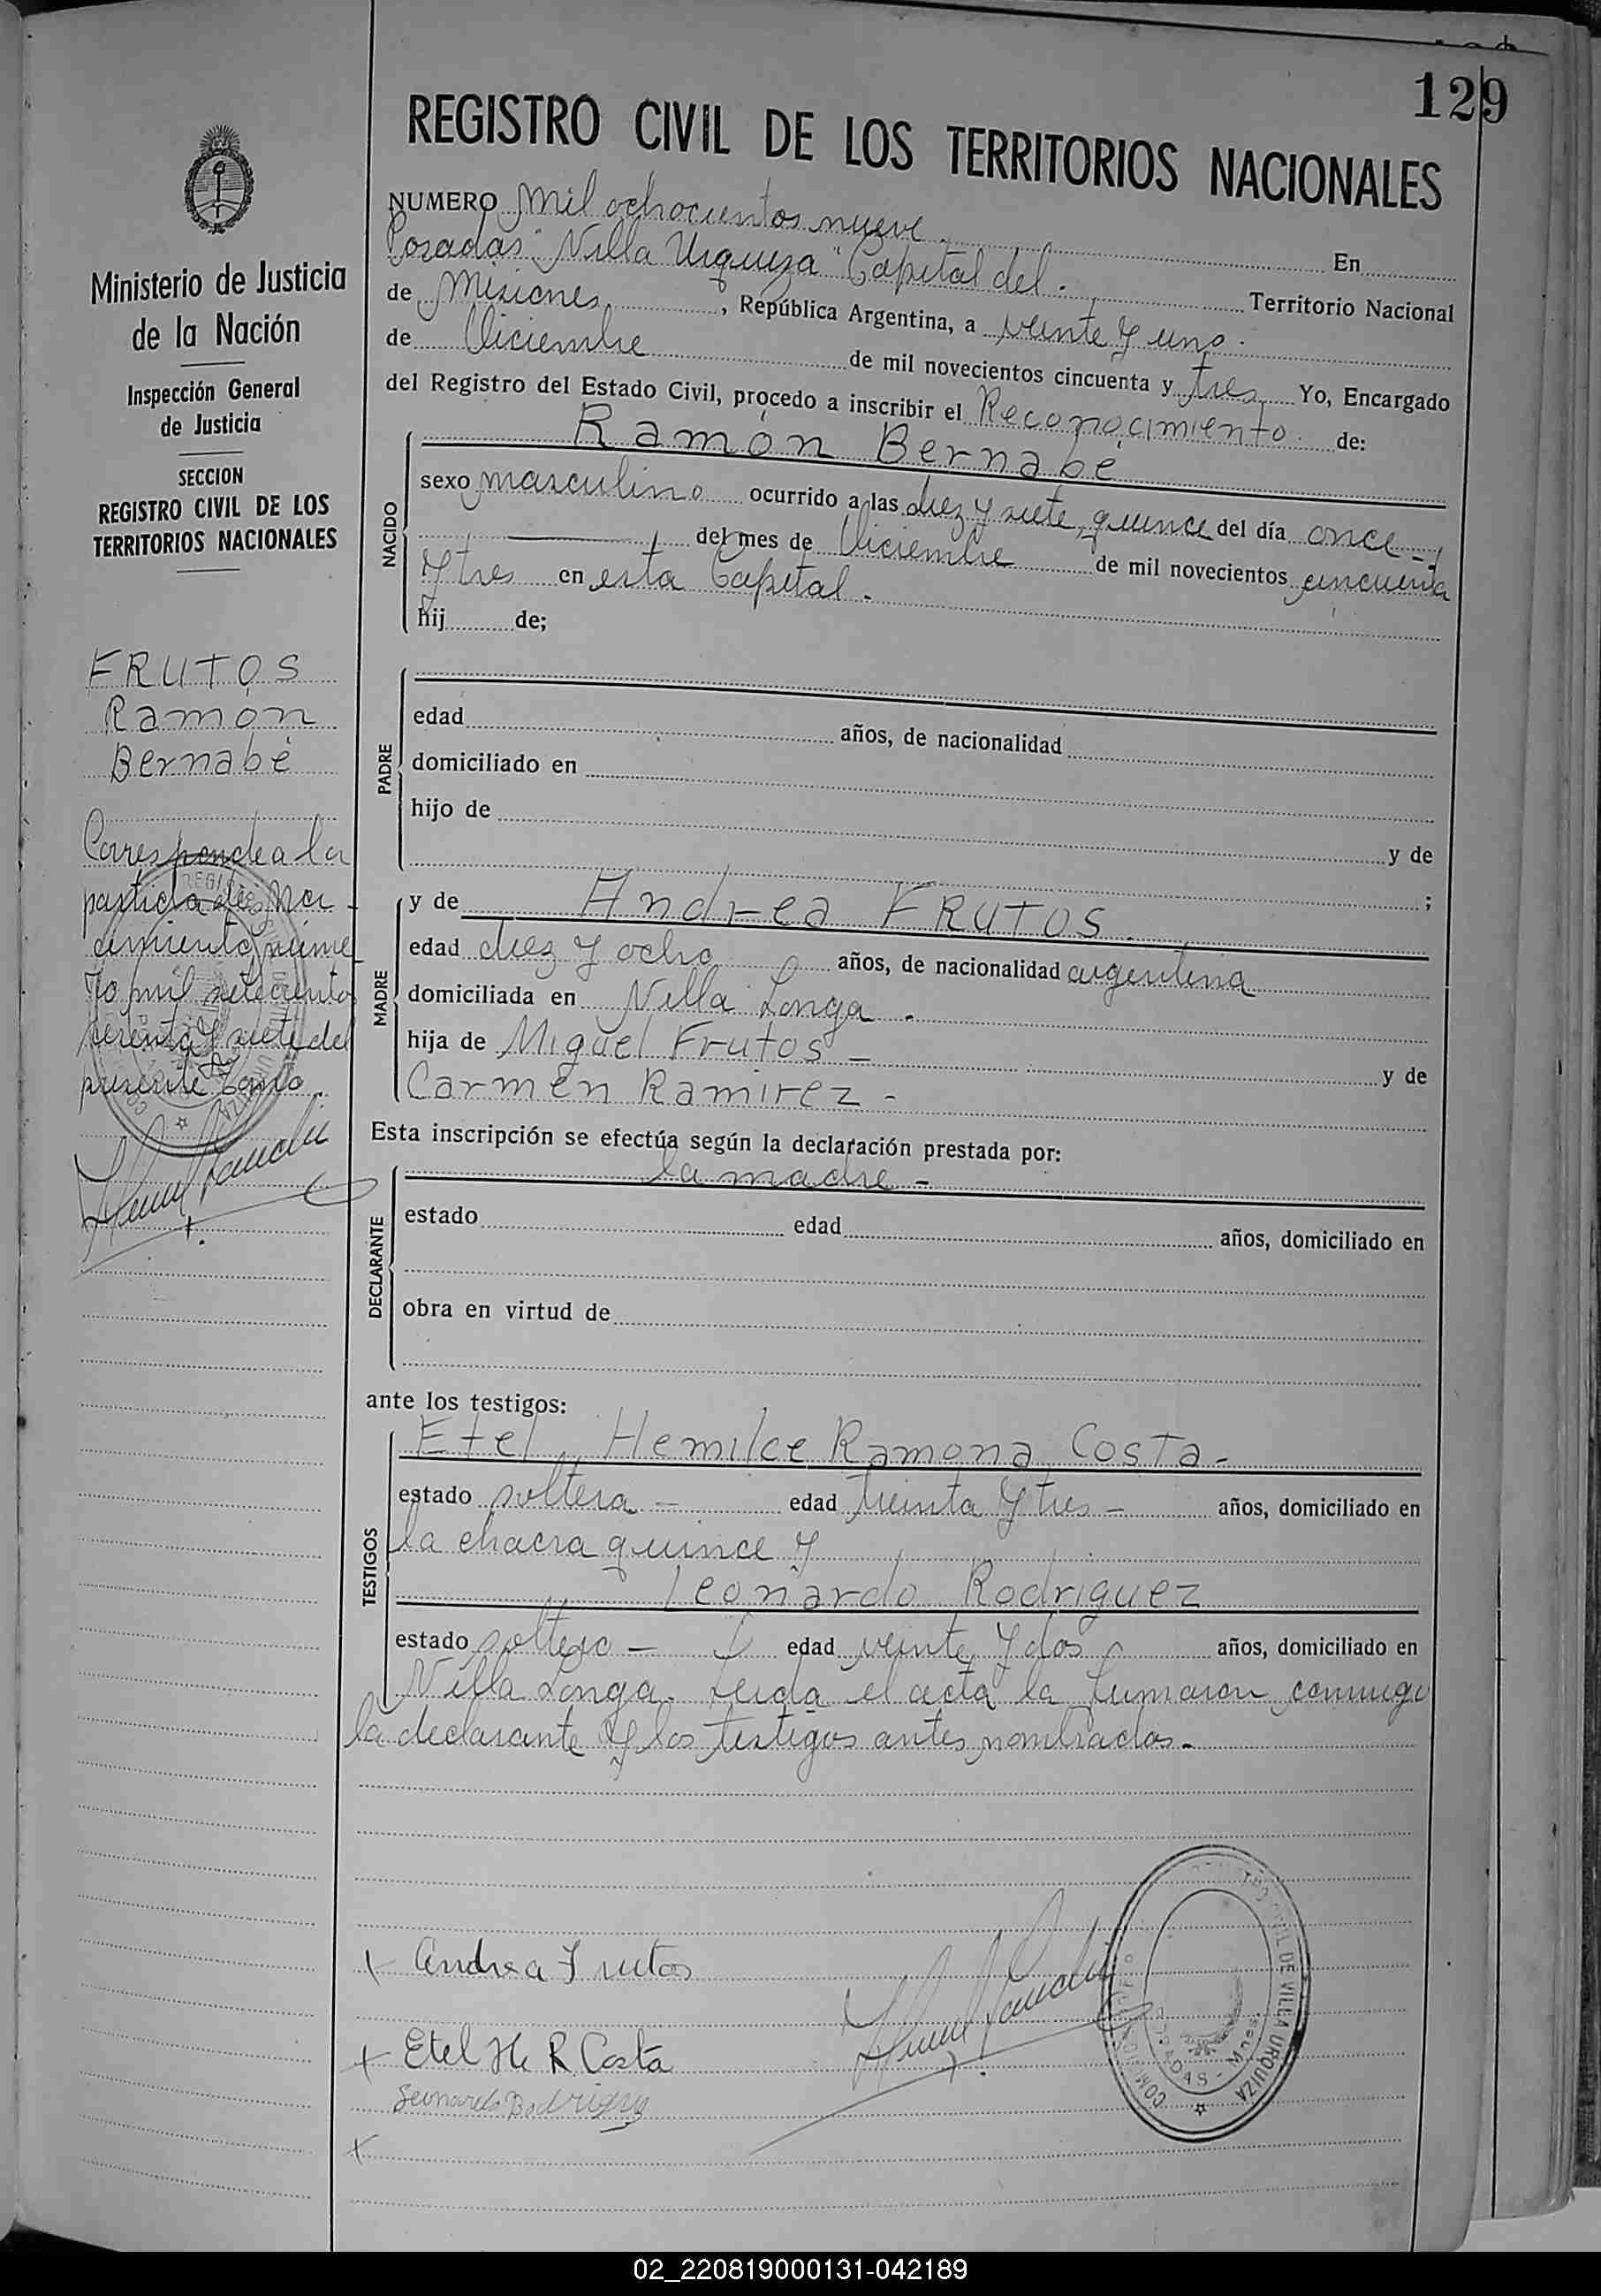 129
REGISTRO CIVIL DE LOS TERRITORIOS NACIONALES
Ministerio de Justicia
de la Nación
Inspección General
de Justicia
SECCION
REGISTRO CIVIL DE LOS
TERRITORIOS NACIONALES
FRUTOS
Ramón
Bernabé
Corresponde a la
partida de Na-
cimiento núme
ro mil setecientos
y siete del
presente tomo
NUMERO mil ochocientos nueve. En
Posadas "Villa Urquiza" Capital del. Territorio Nacional
de Misiones, República Argentina, a veinte y uno.
de Diciembre de mil novecientos cincuenta y tres Yo, Encargado
del Registro del Estado Civil, procedo a inscribir el Reconocimiento. de:
NACIDO
Ramón Bernabé
sexo masculino ocurrido a las diez y siete, quince del día once -
del mes de Diciembre de mil novecientos cincuenta
y tres en esta Capital.
hij de;
PADRE
edad años, de nacionalidad
domiciliado en
hijo de
y de
;
MADRE
y de Andrea FRUTOS.
edad diez y ocho años, de nacionalidad argentina
domiciliada en Villa Longa.
hija de Miguel Frutos - y de
Carmen Ramirez -
Esta inscripción se efectúa según la declaración prestada por:
DECLARANTE
la madre -
estado edad años, domiciliado en
obra en virtud de
ante los testigos:
TESTIGOS
Etel Hemilce Ramona Costa -
estado soltera - edad treinta y tres - años, domiciliado en
la chacra quince y
Leonardo Rodriguez
estado soltero - edad veinte y dos años, domiciliado en
Villa Longa. Leida el acta la firmaron conmigo
la declarante y los testigos antes nombrados.
x Andrea Frutos
x Etel H. R. Costa
Leonardo Rodriguez
x
CIVIL DE VILLA URQUIZA
POSADAS - Mnes.
02_220819000131-042189